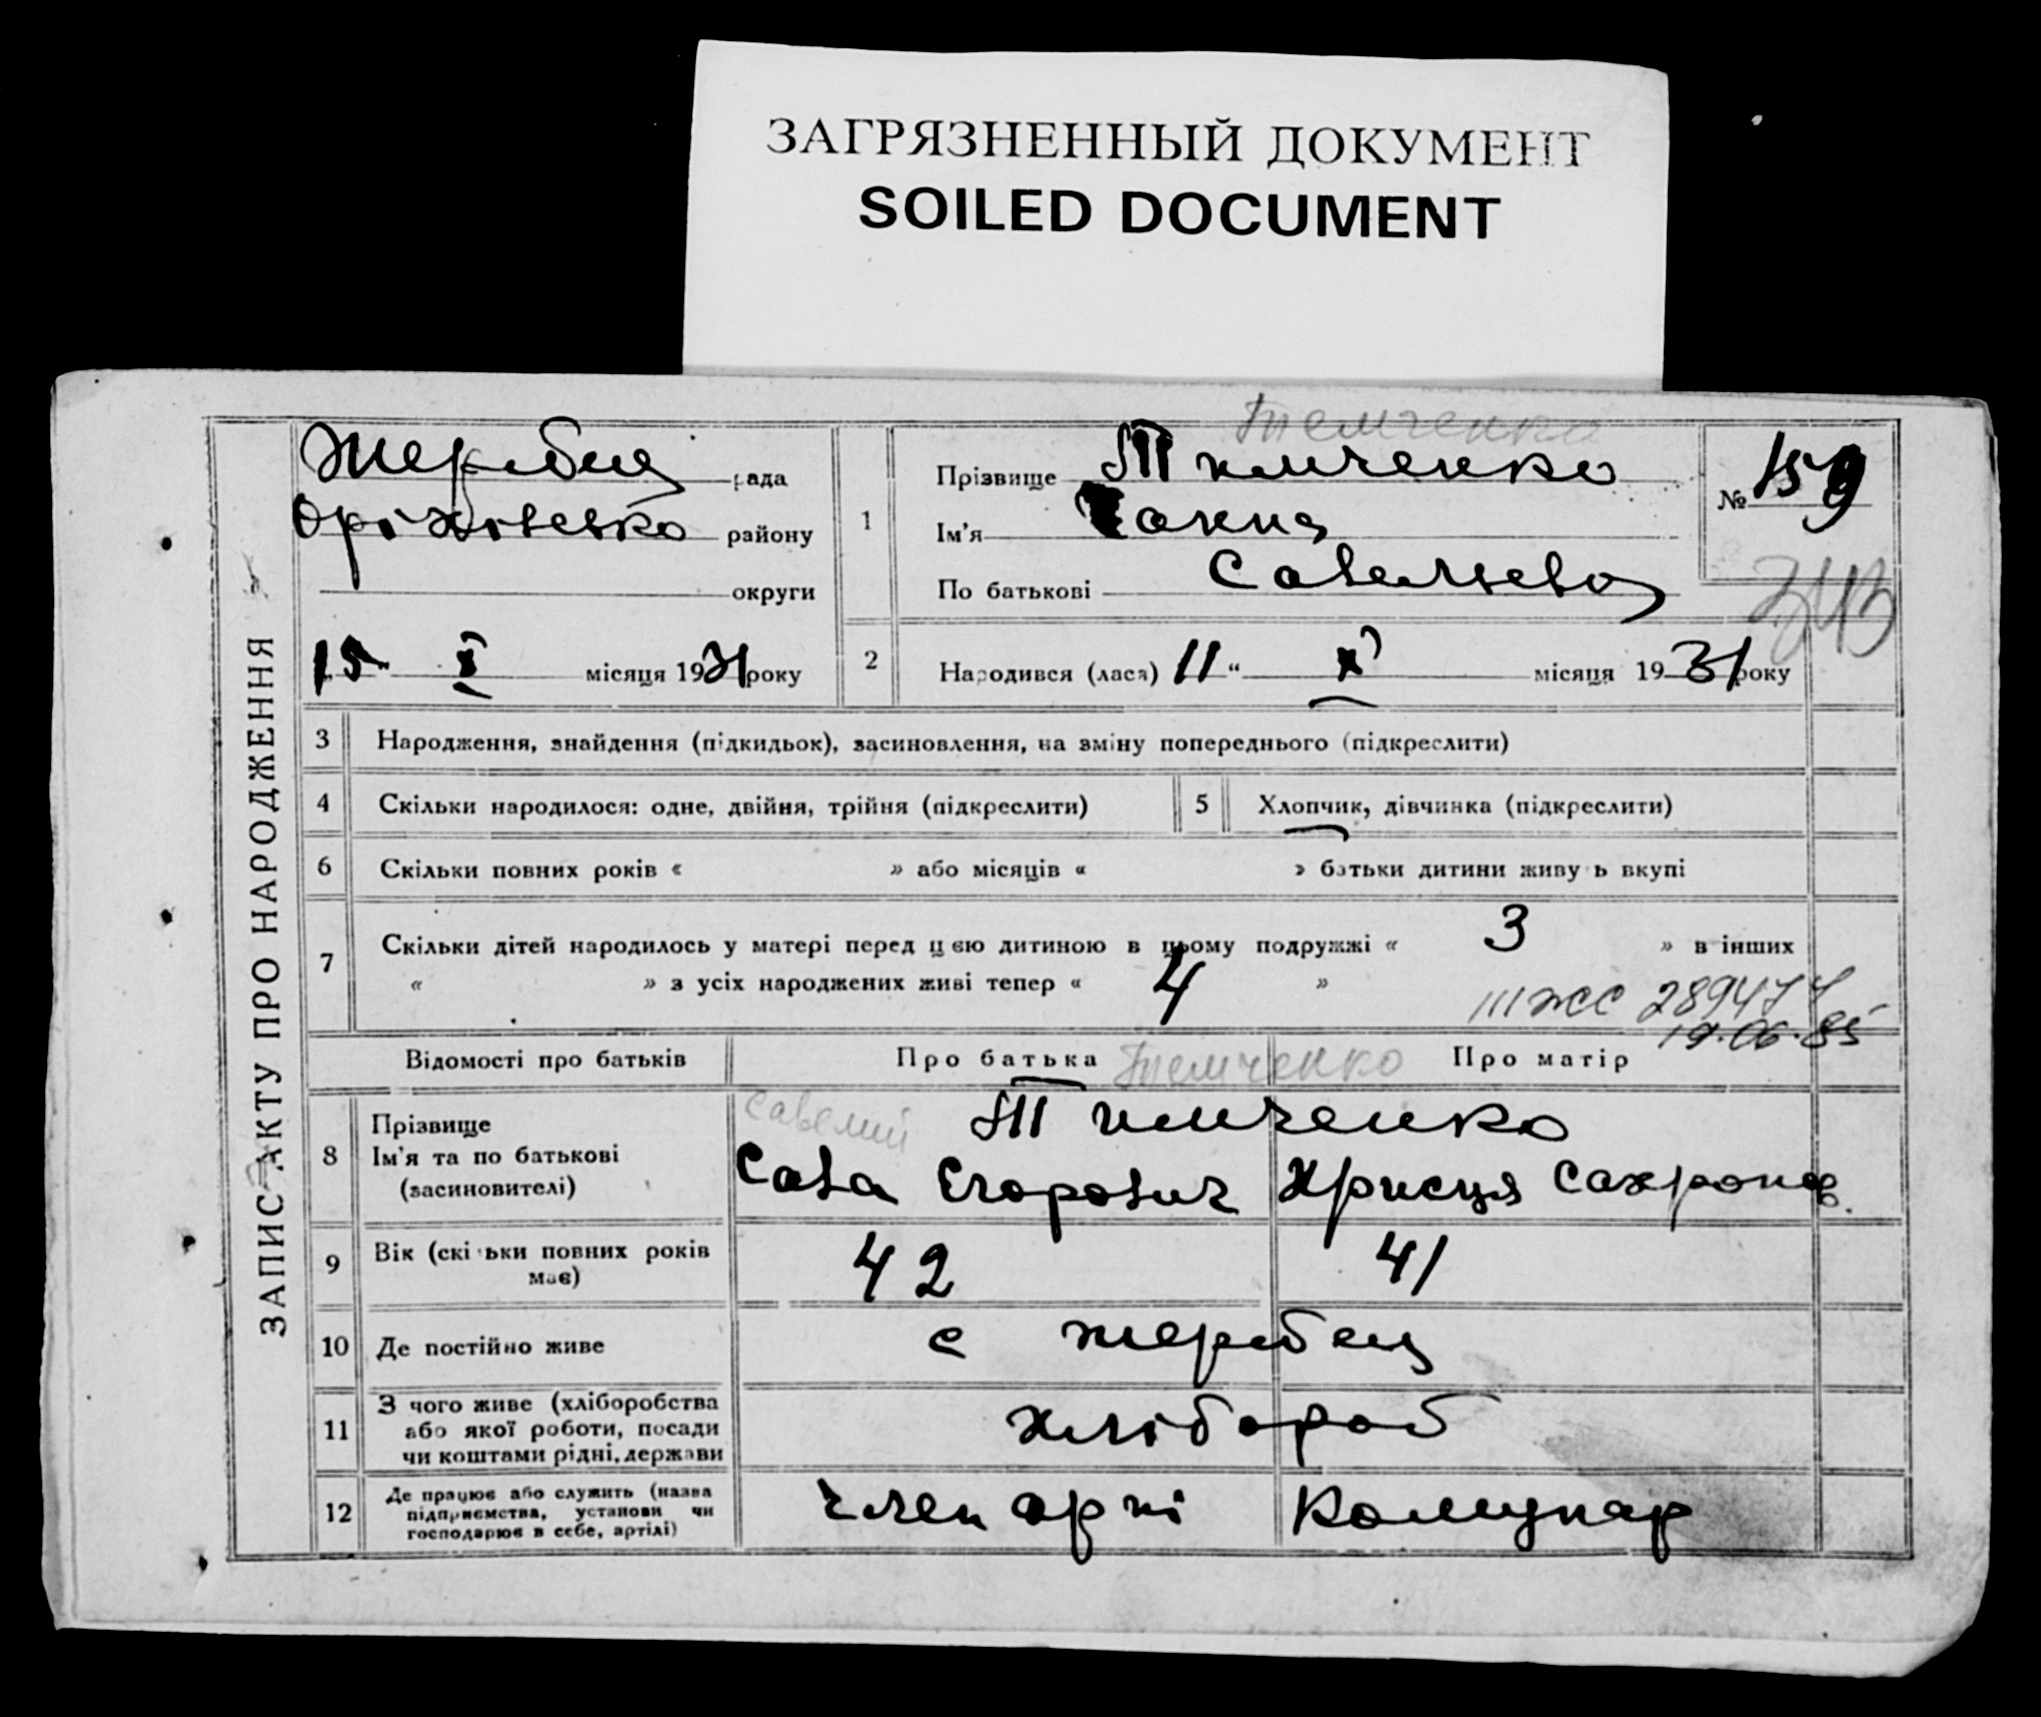 ЗАГРЯЗНЕННЫЙ ДОКУМЕНТ
SOILED DOCUMENT
ЗАПИС АКТУ ПРО НАРОДЖЕННЯ
Жеребец рада
Оріхівсько району
округи
15 X місяця 1931 року
Темченко
1 Прізвище Тимченко
Ім'я
По батькові Савельева
№ 159
2 Народився (лася) 11 " X місяця 1931 року
3 Народження, знайдення (підкидьок), засиновлення, на зміну попереднього (підкреслити)
4 Скільки народилося: одне, двійня, трійня (підкреслити) 5 Хлопчик, дівчинка (підкреслити)
6 Скільки повних років « » або місяців « » батьки дитини живуть вкупі
7 Скільки дітей народилось у матері перед цією дитиною в цьому подружжі « 3 » в інших
« » з усіх народжених живі тепер « 4 »
III ЖС 289474
19.06.85
Відомості про батьків Про батька Темченко Про матір
8 Прізвище
Ім'я та по батькові
(засиновителі)
Савелий Тимченко
Сава Егорович Христя Сахронов
9 Вік (скільки повних років має) 42 41
10 Де постійно живе с Жеребец
11 З чого живе (хліборобства
або якої роботи, посади
чи коштами рідні, держави
хлібороб
12 Де працює або служить (назва
підприємства, установи чи
господарює в себе, артілі)
член арті Комунар